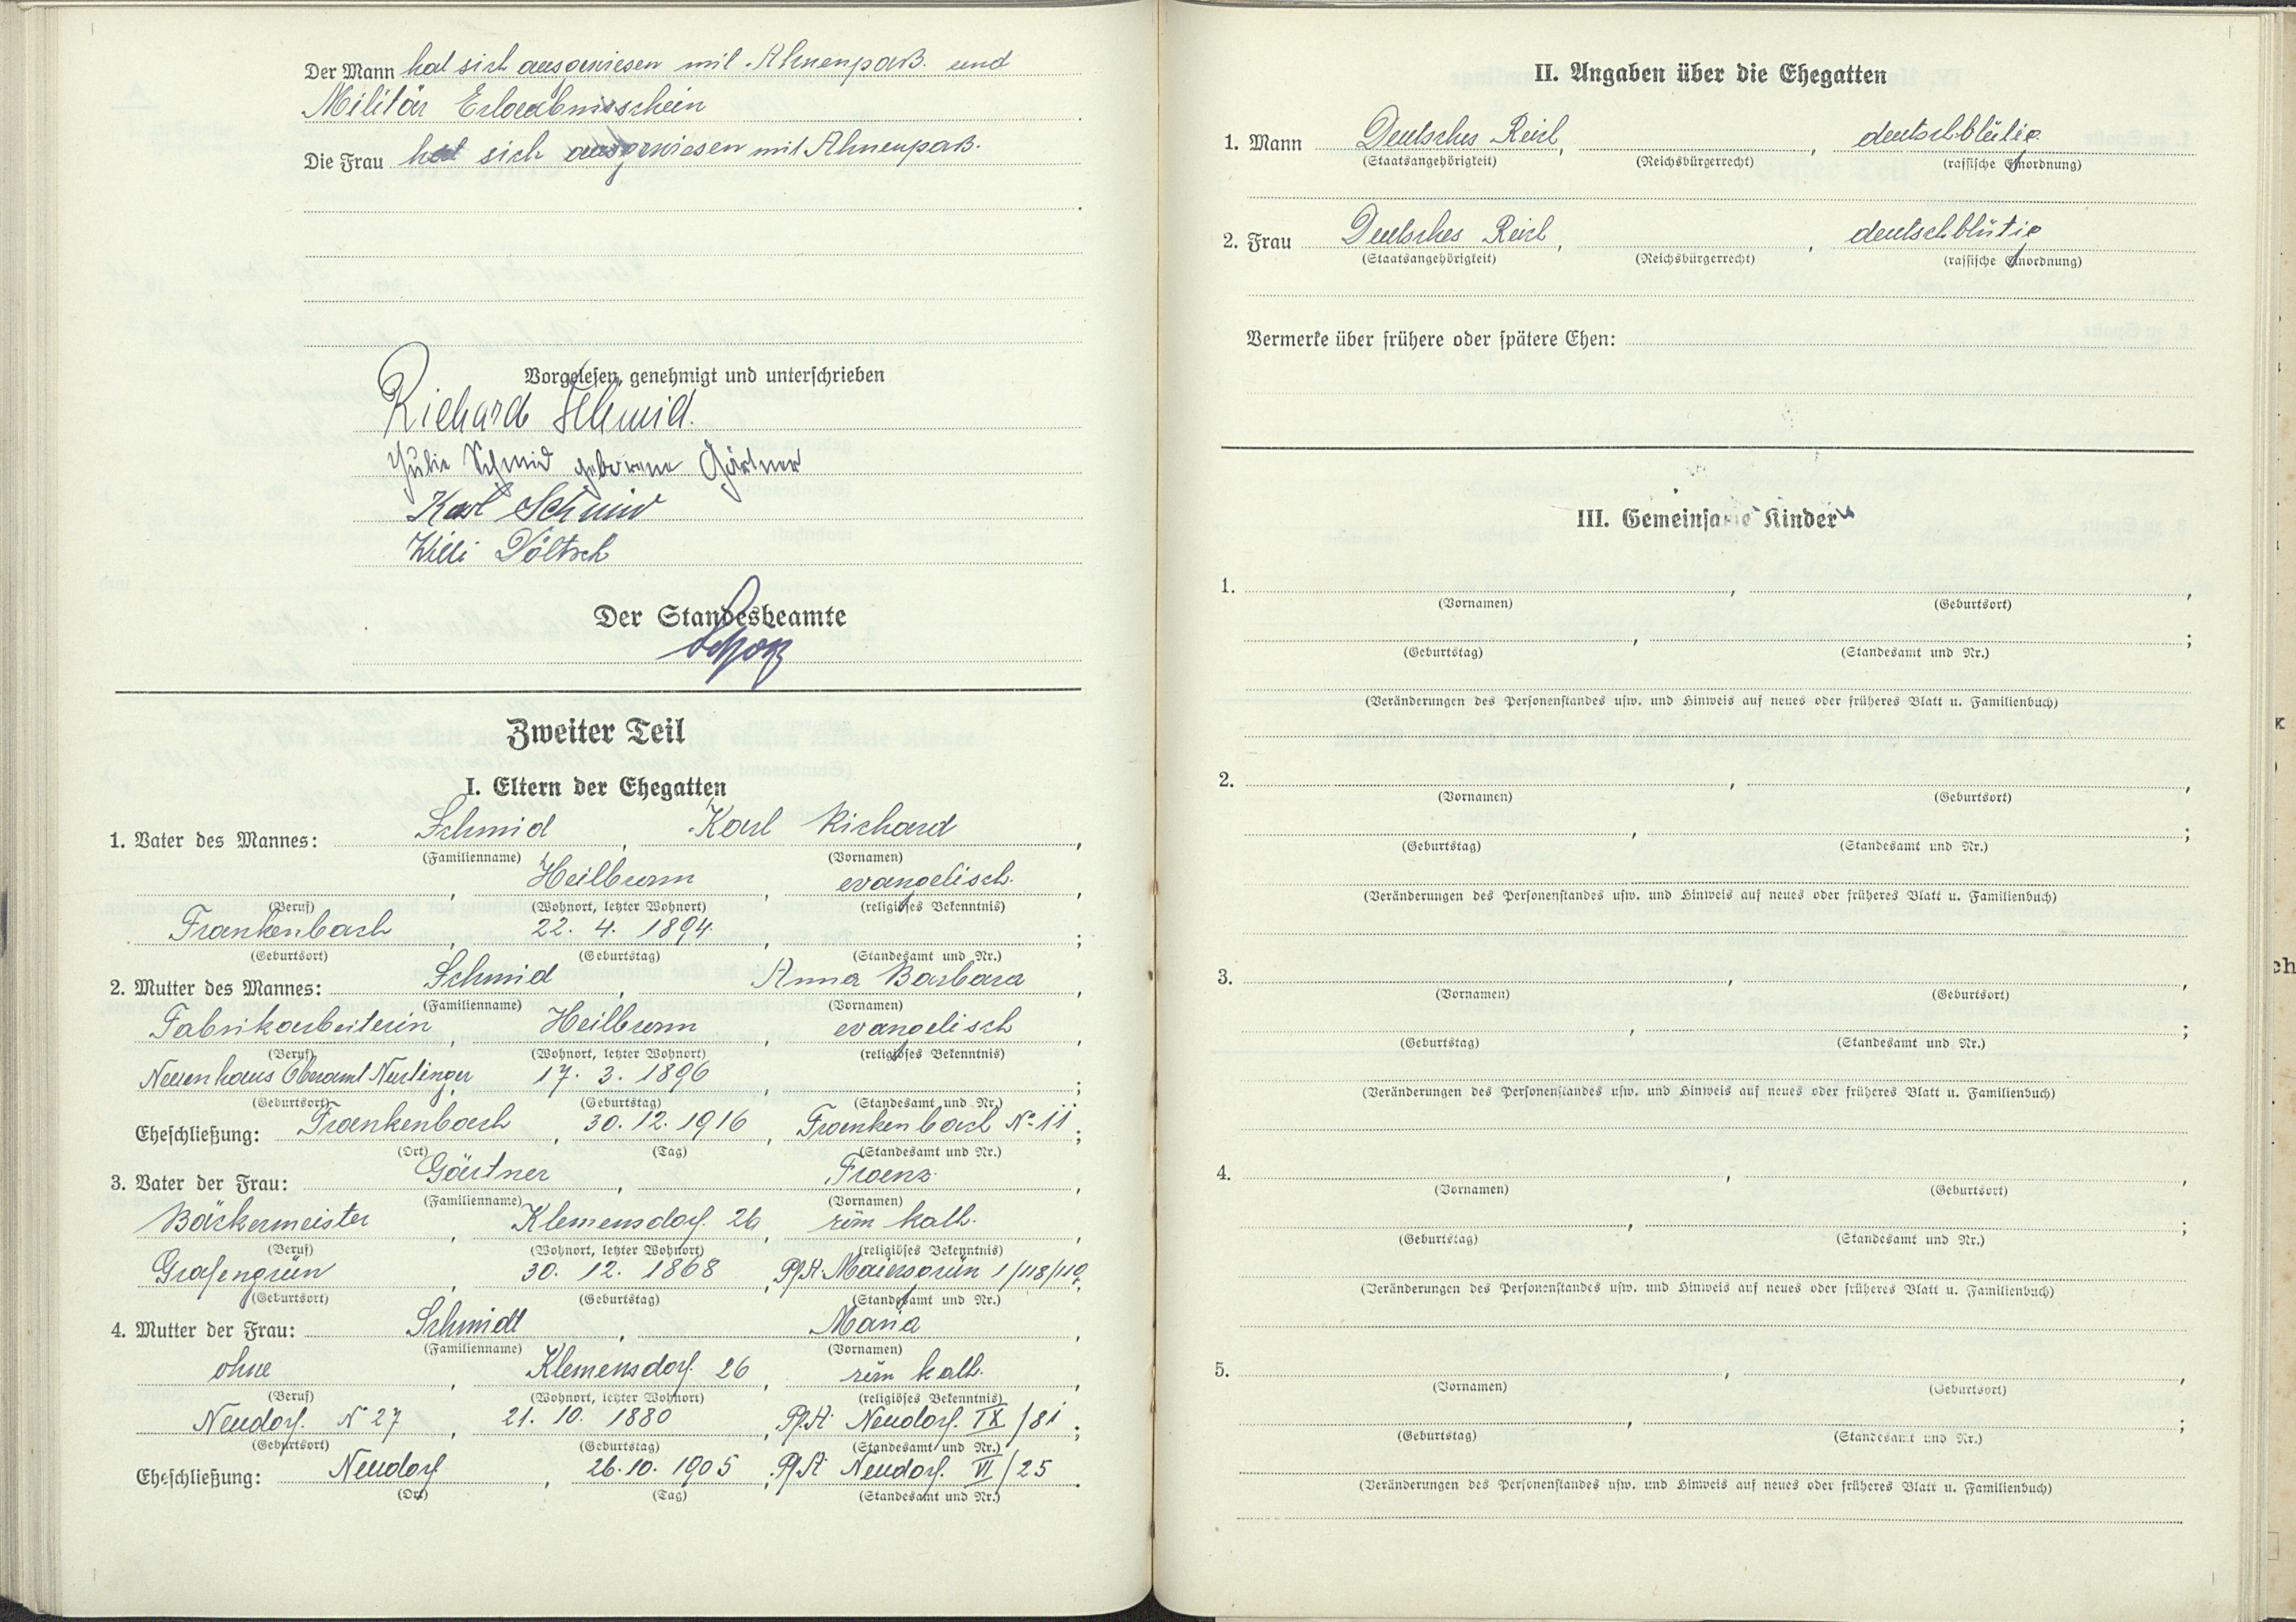 Der Mann hat sich ausgewiesen mit Ahnenpaß und
Militär Erlaubnisschein
Die Frau hat sich ausgewiesen mit Ahnenpaß.
Vorgelesen, genehmigt und unterschrieben
Richard Schmid.
Julie Schmid geborene Gärtner
Karl Schmid
Willi Döltsch
Der Standesbeamte
Zweiter Teil
I. Eltern der Ehegatten
1. Vater des Mannes: Schmid, Karl Richard,
(Familienname) (Vornamen)
, Heilbronn, evangelisch.,
(Beruf) (Wohnort, letzter Wohnort) (religiöses Bekenntnis)
Frankenbach, 22. 4. 1894, ;
(Geburtsort) (Geburtstag) (Standesamt und Nr.)
2. Mutter des Mannes: Schmid, Anna Barbara,
(Familienname) (Vornamen)
Fabrikarbeiterin, Heilbronn, evangelisch,
(Beruf) (Wohnort, letzter Wohnort) (religiöses Bekenntnis)
Neuenhaus Oberamt Nürtingen, 17. 3. 1896, ;
(Geburtsort) (Geburtstag) (Standesamt und Nr.)
Eheschließung: Frankenbach, 30. 12. 1916, Frankenbach No 11;
(Ort) (Tag) (Standesamt und Nr.)
3. Vater der Frau: Gärtner, Franz,
(Familienname) (Vornamen)
Bäckermeister, Klemensdorf. 26, röm kath.,
(Beruf) (Wohnort, letzter Wohnort) (religiöses Bekenntnis)
Grafengrün, 30. 12. 1868, Pf.A. Maiersgrün 1/118/119;
(Geburtsort) (Geburtstag) (Standesamt und Nr.)
4. Mutter der Frau: Schmidt, Maria,
(Familienname) (Vornamen)
ohne, Klemensdorf. 26, röm kath.,
(Beruf) (Wohnort, letzter Wohnort) (religiöses Bekenntnis)
Neudorf. No 27, 21. 10. 1880, Pf.A. Neudorf. IX/81;
(Geburtsort) (Geburtstag) (Standesamt und Nr.)
Eheschließung: Neudorf, 26. 10. 1905, Pf.A. Neudorf. VI/25.
(Ort) (Tag) (Standesamt und Nr.)
II. Angaben über die Ehegatten
1. Mann Deutsches Reich, , deutschblütig
(Staatsangehörigkeit) (Reichsbürgerrecht) (rassische Einordnung)
2. Frau Deutsches Reich, , deutschblütig
(Staatsangehörigkeit) (Reichsbürgerrecht) (rassische Einordnung)
Vermerke über frühere oder spätere Ehen:
III. Gemeinsame Kinder
1. , ,
(Vornamen) (Geburtsort)
, ;
(Geburtstag) (Standesamt und Nr.)
(Veränderungen des Personenstandes usw. und Hinweis auf neues oder früheres Blatt u. Familienbuch)
2. , ,
(Vornamen) (Geburtsort)
, ;
(Geburtstag) (Standesamt und Nr.)
(Veränderungen des Personenstandes usw. und Hinweis auf neues oder früheres Blatt u. Familienbuch)
3. , ,
(Vornamen) (Geburtsort)
, ;
(Geburtstag) (Standesamt und Nr.)
(Veränderungen des Personenstandes usw. und Hinweis auf neues oder früheres Blatt u. Familienbuch)
4. , ,
(Vornamen) (Geburtsort)
, ;
(Geburtstag) (Standesamt und Nr.)
(Veränderungen des Personenstandes usw. und Hinweis auf neues oder früheres Blatt u. Familienbuch)
5. , ,
(Vornamen) (Geburtsort)
, ;
(Geburtstag) (Standesamt und Nr.)
(Veränderungen des Personenstandes usw. und Hinweis auf neues oder früheres Blatt u. Familienbuch)